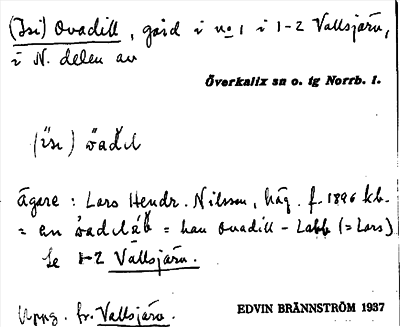 (Isi) Ovadill, gård i no 1 i 1-2 Vallsjärv,
i N. delen av
Överkalix sn o. tg Norrb. l.
(isi)
Ägare: Lars Hendr. Nilsson, häg. f. 1896 kb.
= en = han Ovadill-Labb (=Lars)
Se 1-2 Vallsjärv.
Uppg. fr. Vallsjärv.
EDVIN BRÄNNSTRÖM 1937